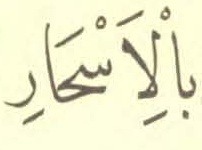 بِاْلِاَسْحَارِ